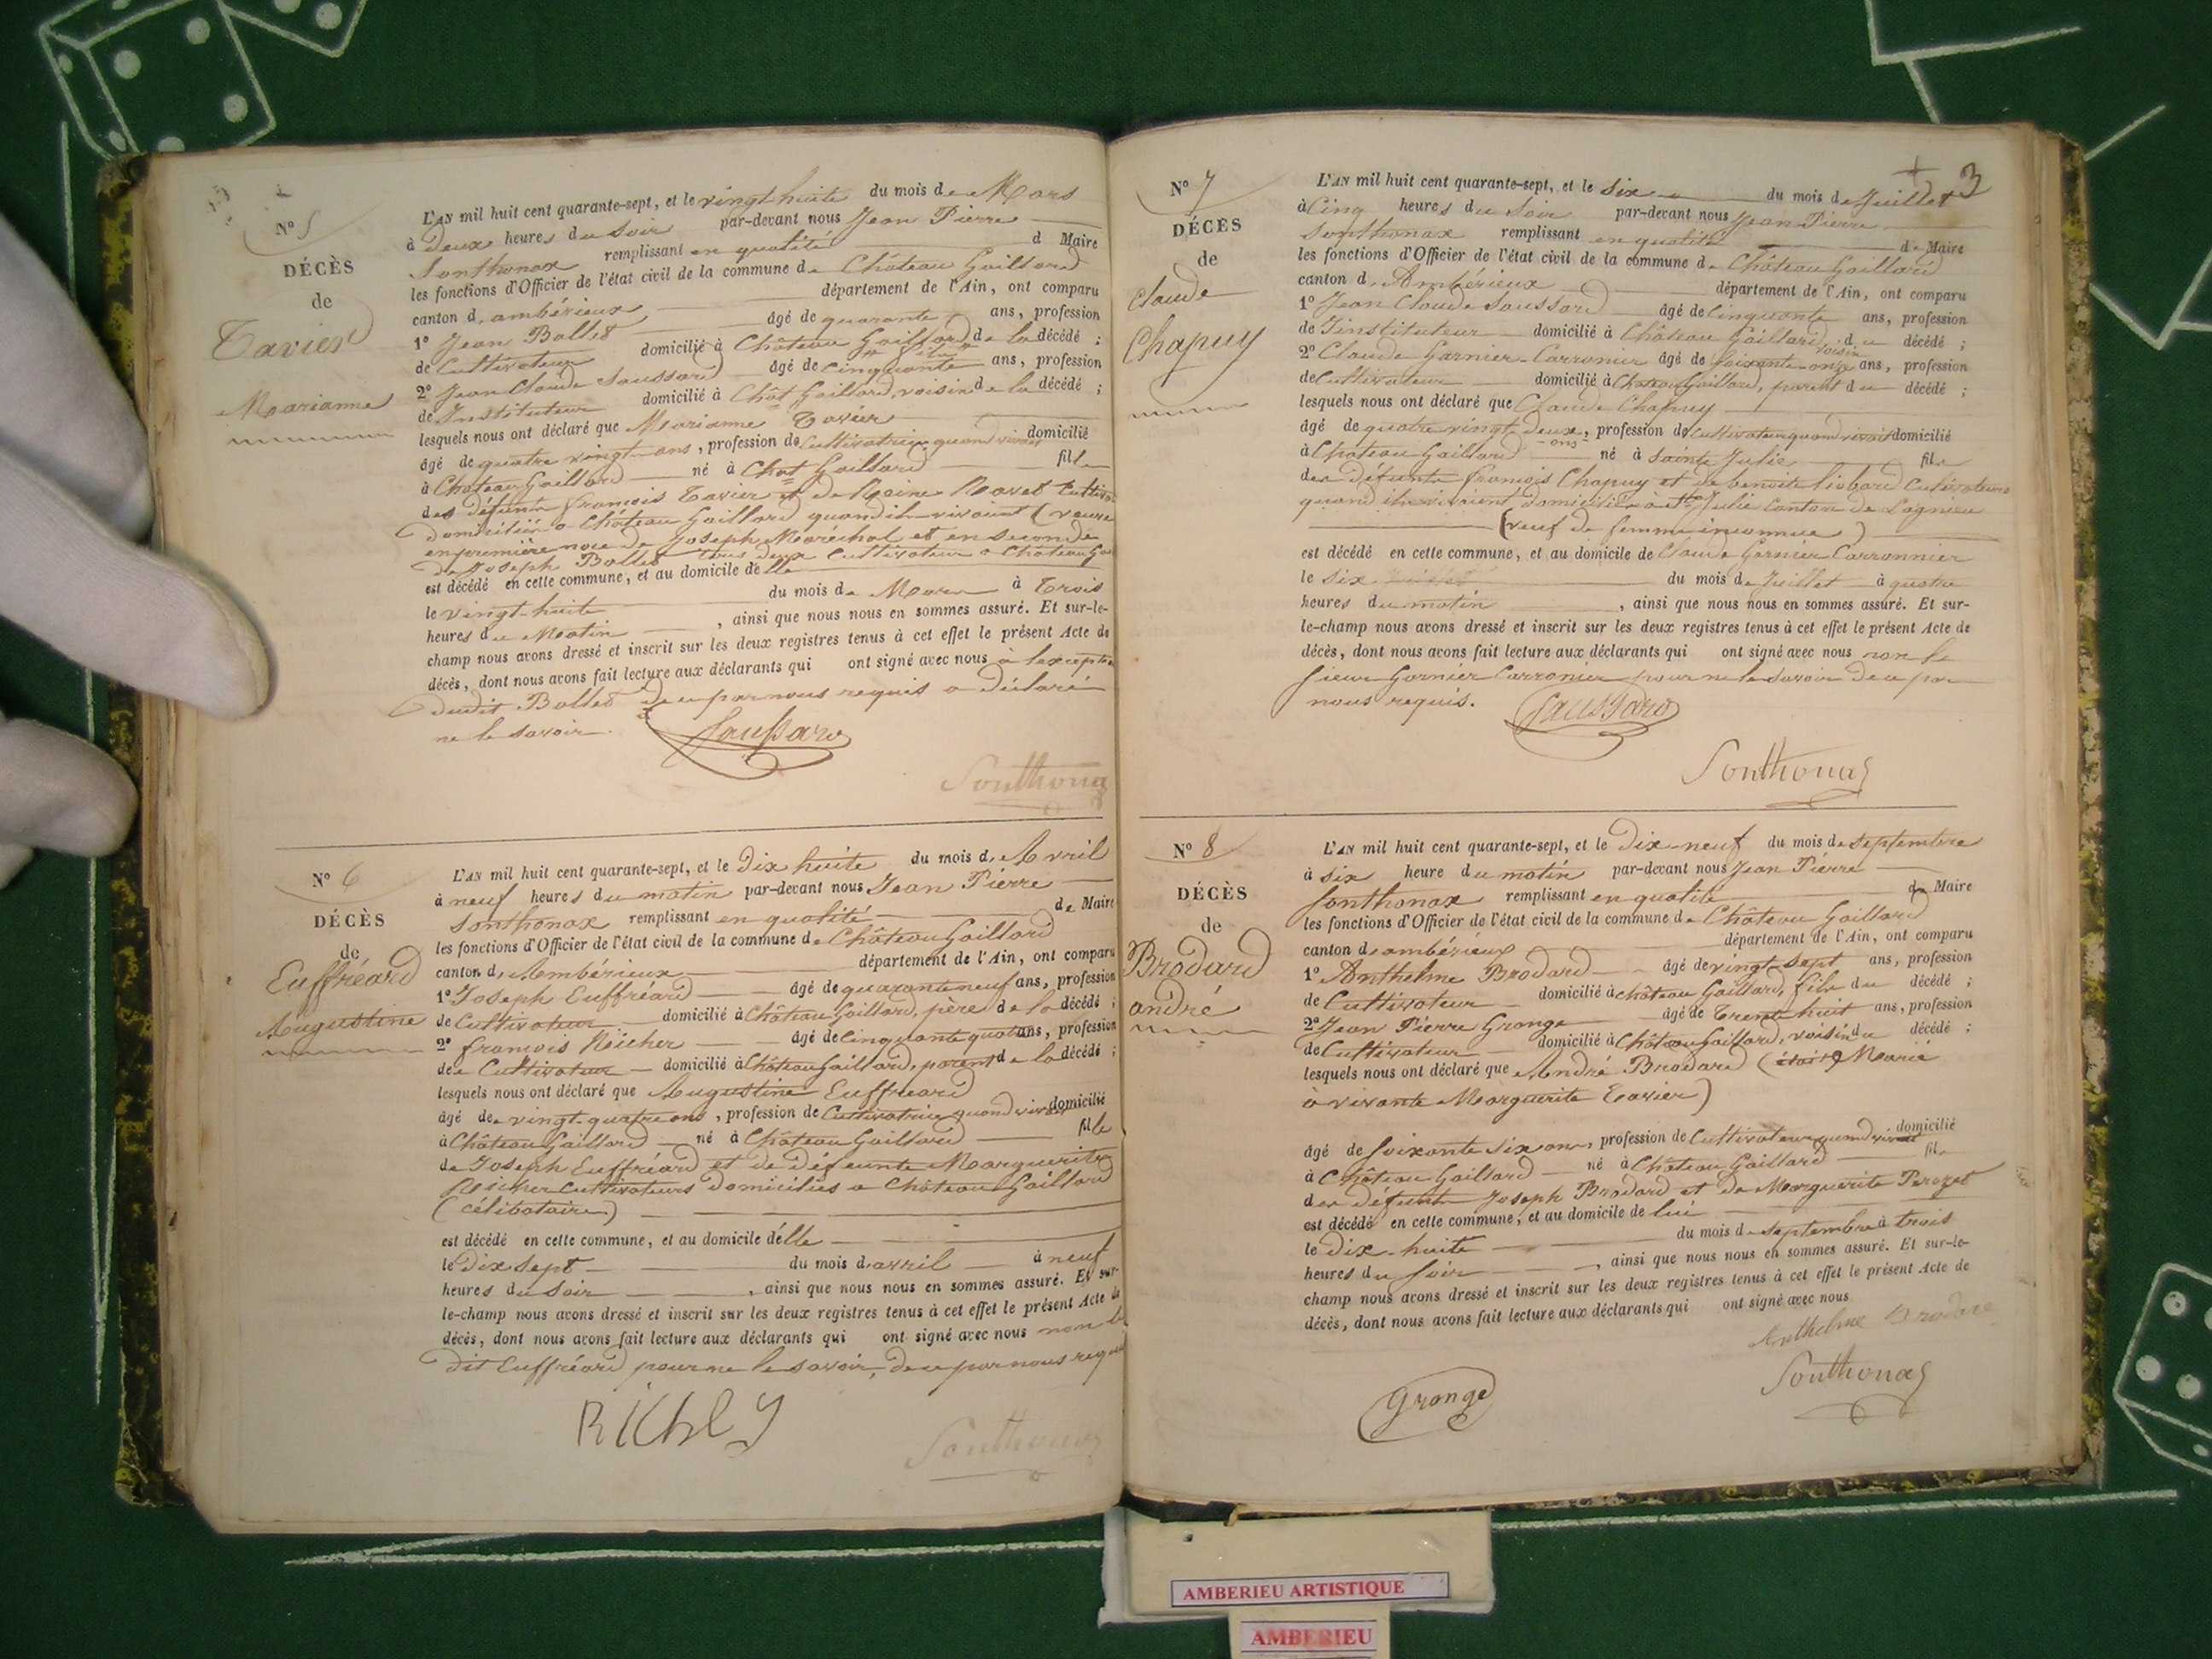 N° 5
DÉCÈS
de
Tavier
Marianne
L'AN mil huit cent quarante-sept, et le vingt huite du mois de Mars
à Deux heures du Soir par-devant nous Jean Pierre
Sonthonax remplissant en qualité de Maire
les fonctions d'Officier de l'état civil de la commune de Château Gaillard
canton d'ambérieux département de l'Ain, ont comparu
1° Jean Bollet âgé de quarante ans, profession
de Cultivateur domicilié à Château Gaillard, de la décédé ;
2° Jean Claude Saussard âgé de cinquante ans, profession
de Instituteur domicilié à Chât Gaillard, voisin de la décédé ;
lesquels nous ont déclaré que Marianne Tavier
âgé de quatre vingt ans, profession de Cultivatrice quand vivait domicilié
à Château Gaillard né à Chat Gaillard fille
des défunts françois Tavier et de Reine
domiciliés à Château Gaillard quand ils vivaient (veuve
en première noce de Joseph Maréchal et en seconde
de Joseph Bollet tous deux Cultivateur a Château Ga
est décédé en cette commune, et au domicile delle
le vingt-huite du mois de Mars à Trois
heures du Matin, ainsi que nous nous en sommes assuré. Et sur-le-
champ nous avons dressé et inscrit sur les deux registres tenus à cet effet le présent Acte de
décès, dont nous avons fait lecture aux déclarants qui ont signé avec nous à lexceptio
dudit Bollet de ce par nous requis a déclaré
ne le savoir.
Saussard
Sonthonax
N° 6
DÉCÈS
de
Euffréard
Augustine
L'AN mil huit cent quarante-sept, et le Dix huite du mois d'Avril
à neuf heures du matin par-devant nous Jean Pierre
Sonthonax remplissant en qualité de Maire
les fonctions d'Officier de l'état civil de la commune de Château Gaillard
canton d'Ambérieux département de l'Ain, ont comparu
1° Joseph Euffréard âgé de quarante neuf ans, profession
de Cultivateur domicilié à Château Gaillard, père de la décédé ;
2° françois Richer âgé de cinquante quatre ans, profession
de Cultivateur domicilié à Château Gaillard, parent de la décédé ;
lesquels nous ont déclaré que Augustine Euffréard
âgé de vingt-quatre ans, profession de Cultivatrice quand vivait domicilié
à Château Gaillard né à Château Gaillard fille
de Joseph Euffréard et de Défeunte Marguerite
Richer Cultivateurs domiciliés a Château Gaillard
(célibataire)
est décédé en cette commune, et au domicile d'elle
le Dix sept du mois d'avril à neuf
heures du Soir, ainsi que nous nous en sommes assuré. Et sur-
le-champ nous avons dressé et inscrit sur les deux registres tenus à cet effet le présent Acte de
décès, dont nous avons fait lecture aux déclarants qui ont signé avec nous non le
dit Euffréard pour ne le savoir, de ce par nous requi
RICHEY
Sonthonax
N° 7
DÉCÈS
de
Claude
Chapuy
3
L'AN mil huit cent quarante-sept, et le Six du mois de Juillet
à Cinq heures du Soir par-devant nous Jean Pierre
Sonthonax remplissant en qualité de Maire
les fonctions d'Officier de l'état civil de la commune de Château Gaillard
canton d'Ambérieux département de l'Ain, ont comparu
1° Jean Claude Saussard âgé de Cinquante ans, profession
de Jinstituteur domicilié à Château Gaillard, voisin du décédé ;
2° Claude Garnier-Carronier âgé de soixante-onze ans, profession
de Cultivateur domicilié à Chateau Gaillard, parent du décédé ;
lesquels nous ont déclaré que Claude Chapuy
âgé de quatre vingt deux ans, profession de Cultivateur quand vivait domicilié
à Château Gaillard né à Sainte Julie fils
des défunts françois Chapuy et de benoite liobard Cultivateurs
quand ils vivaient domiciliés à Ste Julie Canton de Lagnieu
(veuf de femme inconnue)
est décédé en cette commune, et au domicile de Claude Garnier Carronnier
le Six du mois de Juillet à quatre
heures du matin, ainsi que nous nous en sommes assuré. Et sur-
le-champ nous avons dressé et inscrit sur les deux registres tenus à cet effet le présent Acte de
décès, dont nous avons fait lecture aux déclarants qui ont signé avec nous non le
sieur Garnier Carronier pour ne le savoir de ce par
nous requis.
Saussard
Sonthonax
N° 8
DÉCÈS
de
Brodard
andré
L'AN mil huit cent quarante-sept, et le Dix-neuf du mois de Septembre
à six heure du matin par-devant nous Jean Pierre
Sonthonax remplissant en qualité de Maire
les fonctions d'Officier de l'état civil de la commune de Château Gaillard
canton d'ambérieux département de l'Ain, ont comparu
1° Anthelme Brodard âgé de vingt-sept ans, profession
de Cultivateur domicilié à château Gaillard, fils du décédé ;
2° Jean Pierre Grange âgé de Trente huit ans, profession
de Cultivateur domicilié à Château Gaillard, voisin du décédé ;
lesquels nous ont déclaré que André Brodard (était Marié
à vivante Marguerite Tavier)
âgé de soixante six ans, profession de Cultivateur quand vivait domicilié
à Château Gaillard né à Château Gaillard fils
des défunts Joseph Brodard et de Marguerite Perozet
est décédé en cette commune, et au domicile de lui
le Dix-huite du mois de Septembre à trois
heures du Soir, ainsi que nous nous en sommes assuré. Et sur-le-
champ nous avons dressé et inscrit sur les deux registres tenus à cet effet le présent Acte de
décès, dont nous avons fait lecture aux déclarants qui ont signé avec nous
Anthelme Brodard
Grange
Sonthonax
AMBERIEU ARTISTIQUE
AMBERIEU